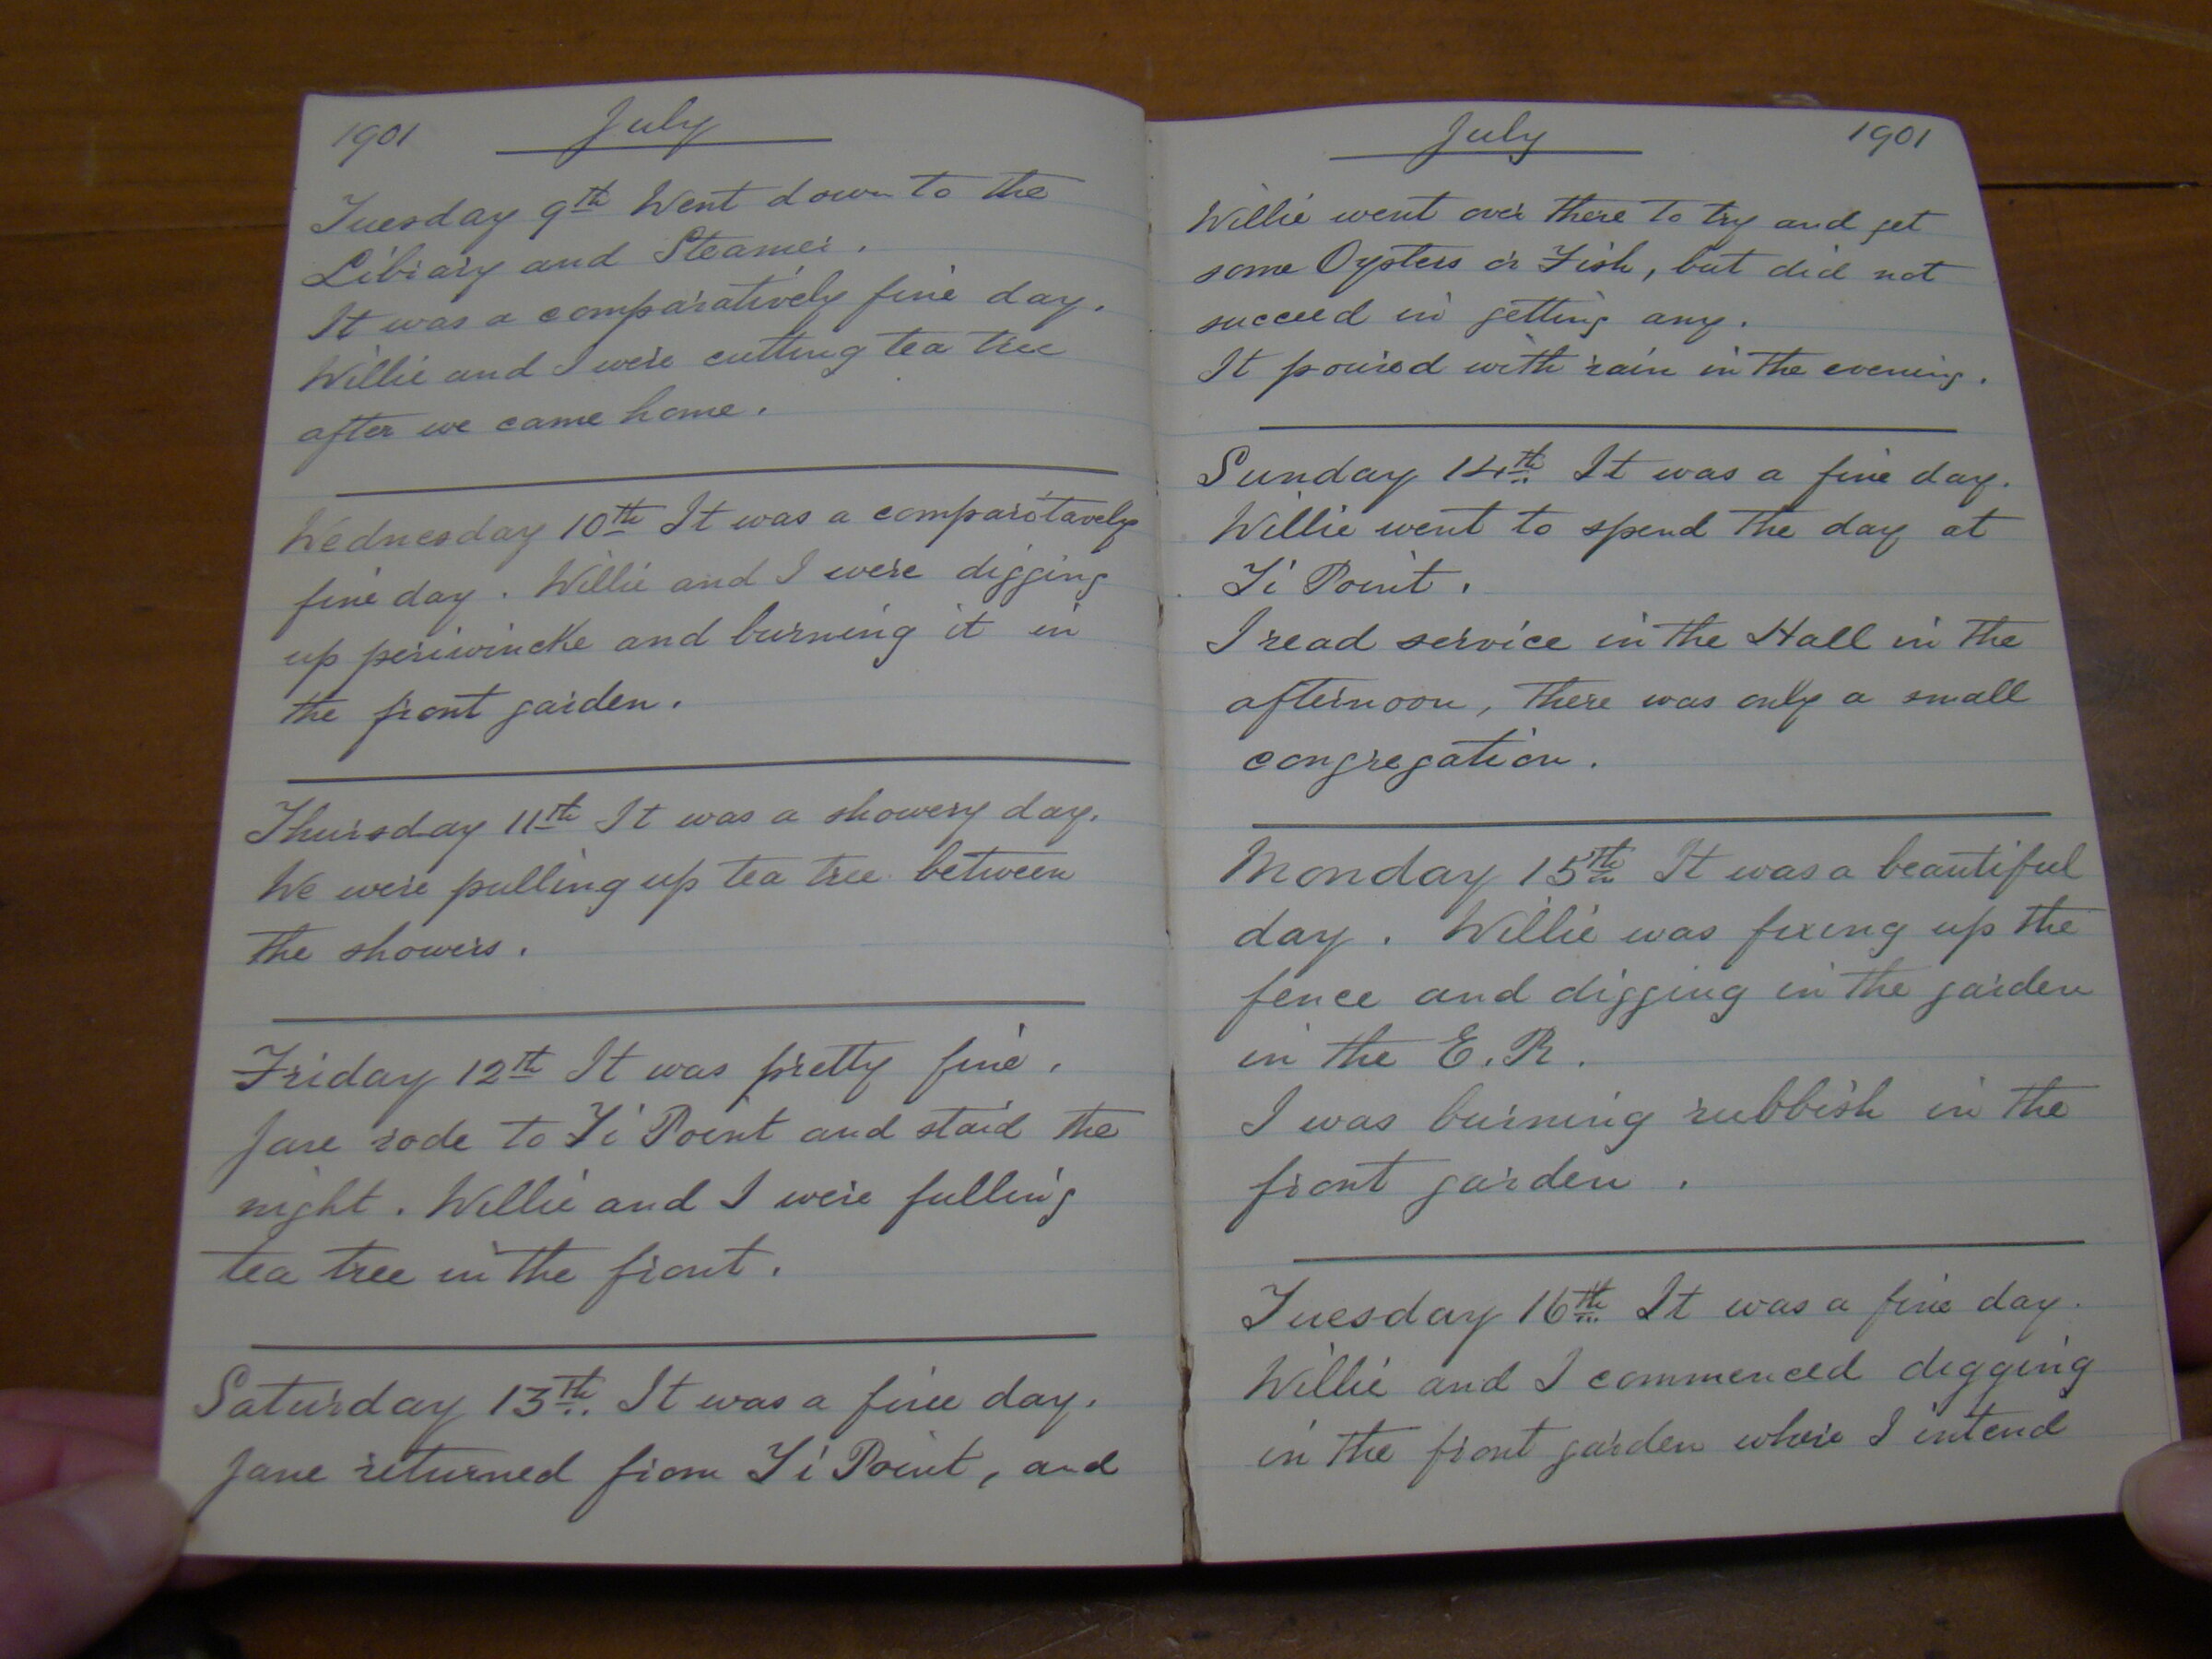 1901 July
Tuesday 9th Went down to the
Library and Steamer.
It was a comparatively fine day.
Willie and I were cutting tea tree
after we came home.
Wednesday 10th It was a comparatavely
fine day. Willie and I were digging
up periwincke and burning it in
the front garden.
Thursday 11th It was a showery day.
We were pulling up tea tree between
the showers.
Friday 12th It was pretty fine.
Jane rode to Ti Point and staid the
night. Willie and I were pulling
tea tree in the front.
Saturday 13th. It was a fine day.
Jane returned from Ti Point, and
July 1901
Willie went over there to try and get
some Oysters or Fish, but did not
succeed in getting any.
It poured with rain in the evening.
Sunday 14th It was a fine day.
Willie went to spend the day at
Ti Point.
I read service in the Hall in the
afternoon, there was only a small
congregation.
Monday 15th It was a beautiful
day. Willie was fixing up the
fence and digging in the garden
in the E.R.
I was burning rubbish in the
front garden.
Tuesday 16th It was a fine day.
Willie and I commenced digging
in the front garden where I intend